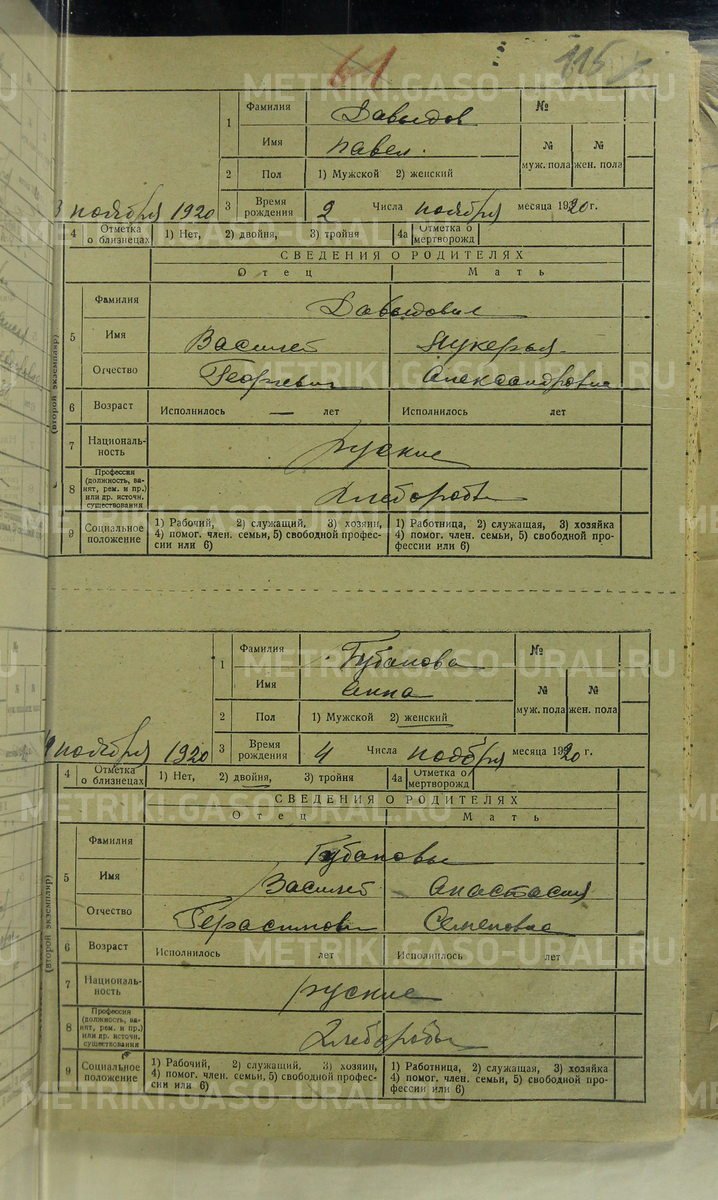 61 115
METRIKI.GASO-URAL.RU
1 Фамилия Давыдов №
Имя Павел. № муж. пола № жен. пола
2 Пол 1) Мужской 2) женский
3 ноября 1920 3 Время рождения 2 Числа ноября месяца 1920 г.
4 Отметка о близнецах 1) Нет, 2) двойня, 3) тройня 4а Отметка о мертворожд
СВЕДЕНИЯ О РОДИТЕЛЯХ
Отец Мать
(второй экземпляр)
Фамилия
5 Имя Василей Лукерья
Отчество Георгевич Александровна
6 Возраст Исполнилось — лет Исполнилось лет
7 Националь-
ность руские
8 Профессия
(должность, за-
нят, рем. и пр.)
или др. источн.
существования Хлеборобы
9 Социальное
положение 1) Рабочий, 2) служащий, 3) хозяин,
4) помог. член. семьи, 5) свободной профес-
сии или 6)
1) Работница, 2) служащая, 3) хозяйка
4) помог. член. семьи, 5) свободной про-
фессии или 6)
1 Фамилия Губанова №
Имя Анна № муж. пола № жен. пола
2 Пол 1) Мужской 2) женский
ноября 1920 3 Время рождения 4 Числа ноября месяца 1920 г.
4 Отметка о близнецах 1) Нет, 2) двойня, 3) тройня 4а Отметка о мертворожд
СВЕДЕНИЯ О РОДИТЕЛЯХ
Отец Мать
(второй экземпляр)
Фамилия Губановы
5 Имя Василей Анастасия
Отчество Герасимови Семеновна
6 Возраст Исполнилось лет Исполнилось лет
7 Националь-
ность руские
8 Профессия
(должность, за-
нят, рем. и пр.)
или др. источн.
существования Хлеборобы
9 Социальное
положение 1) Рабочий, 2) служащий, 3) хозяин,
4) помог. член. семьи, 5) свободной профес-
сии или 6)
1) Работница, 2) служащая, 3) хозяйка
4) помог. член. семьи, 5) свободной про-
фессии или 6)